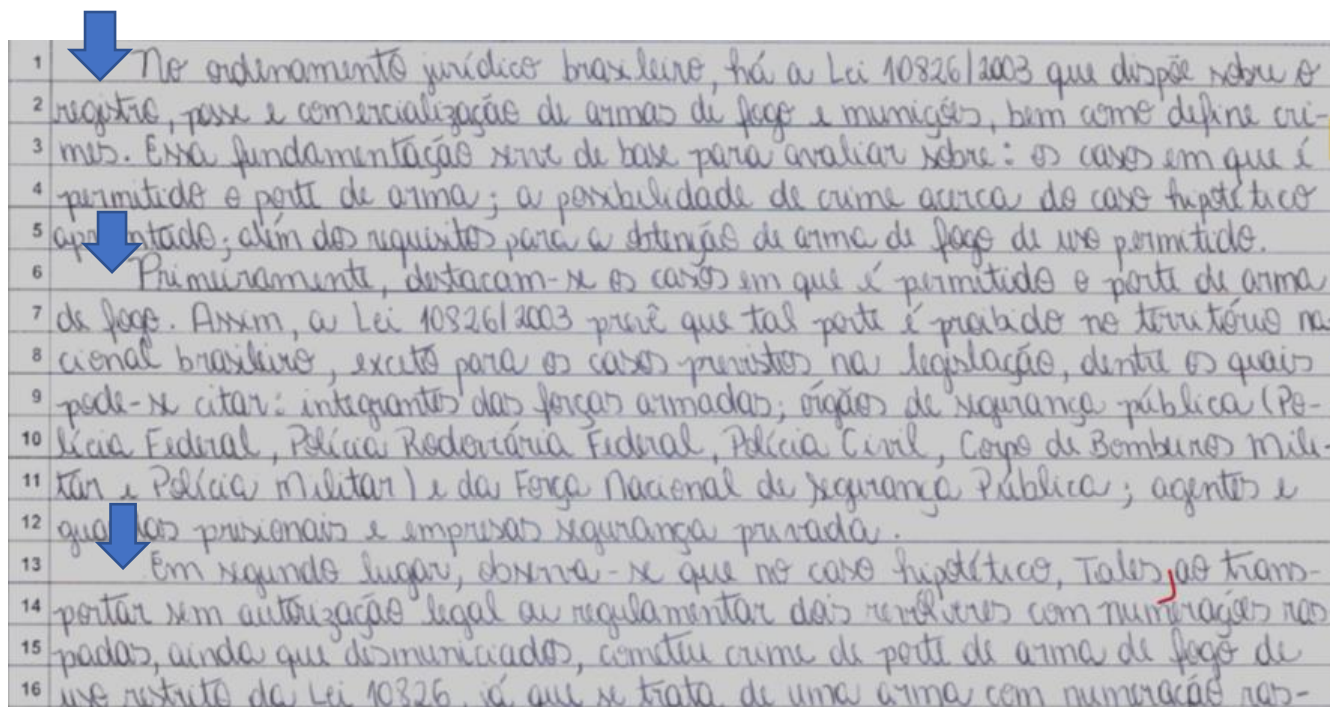 1 No ordenamento jurídico brasileiro, há a Lei 10826/2003 que dispõe sobre o
2 registro, posse e comercialização de armas de fogo e munições, bem como define cri-
3 mes. Essa fundamentação serve de base para avaliar sobre: os casos em que é
4 permitido o porte de arma; a possibilidade de crime acerca do caso hipotético
5 apresentado; além dos requisitos para a obtenção de arma de fogo de uso permitido.
6 Primeiramente, destacam-se os casos em que é permitido o porte de arma
7 de fogo. Assim, a Lei 10826/2003 prevê que tal porte é proibido no território na-
8 cional brasileiro, exceto para os casos previstos na legislação, dentre os quais
9 pode-se citar: integrantes das forças armadas; órgãos de segurança pública (Po-
10 lícia Federal, Polícia Rodoviária Federal, Polícia Civil, Corpo de Bombeiros Mili-
11 tar e Polícia Militar) e da Força Nacional de Segurança Pública; agentes e
12 guardas prisionais e empresas segurança privada.
13 Em segundo lugar, observa-se que no caso hipotético, Tales, ao trans-
14 portar sem autorização legal ou regulamentar dois revólveres com numerações ras
15 padas, ainda que desmuniciados, cometeu crime de porte de arma de fogo de
16 uso restrito da Lei 10826, já que se trata de uma arma com numeração ras-